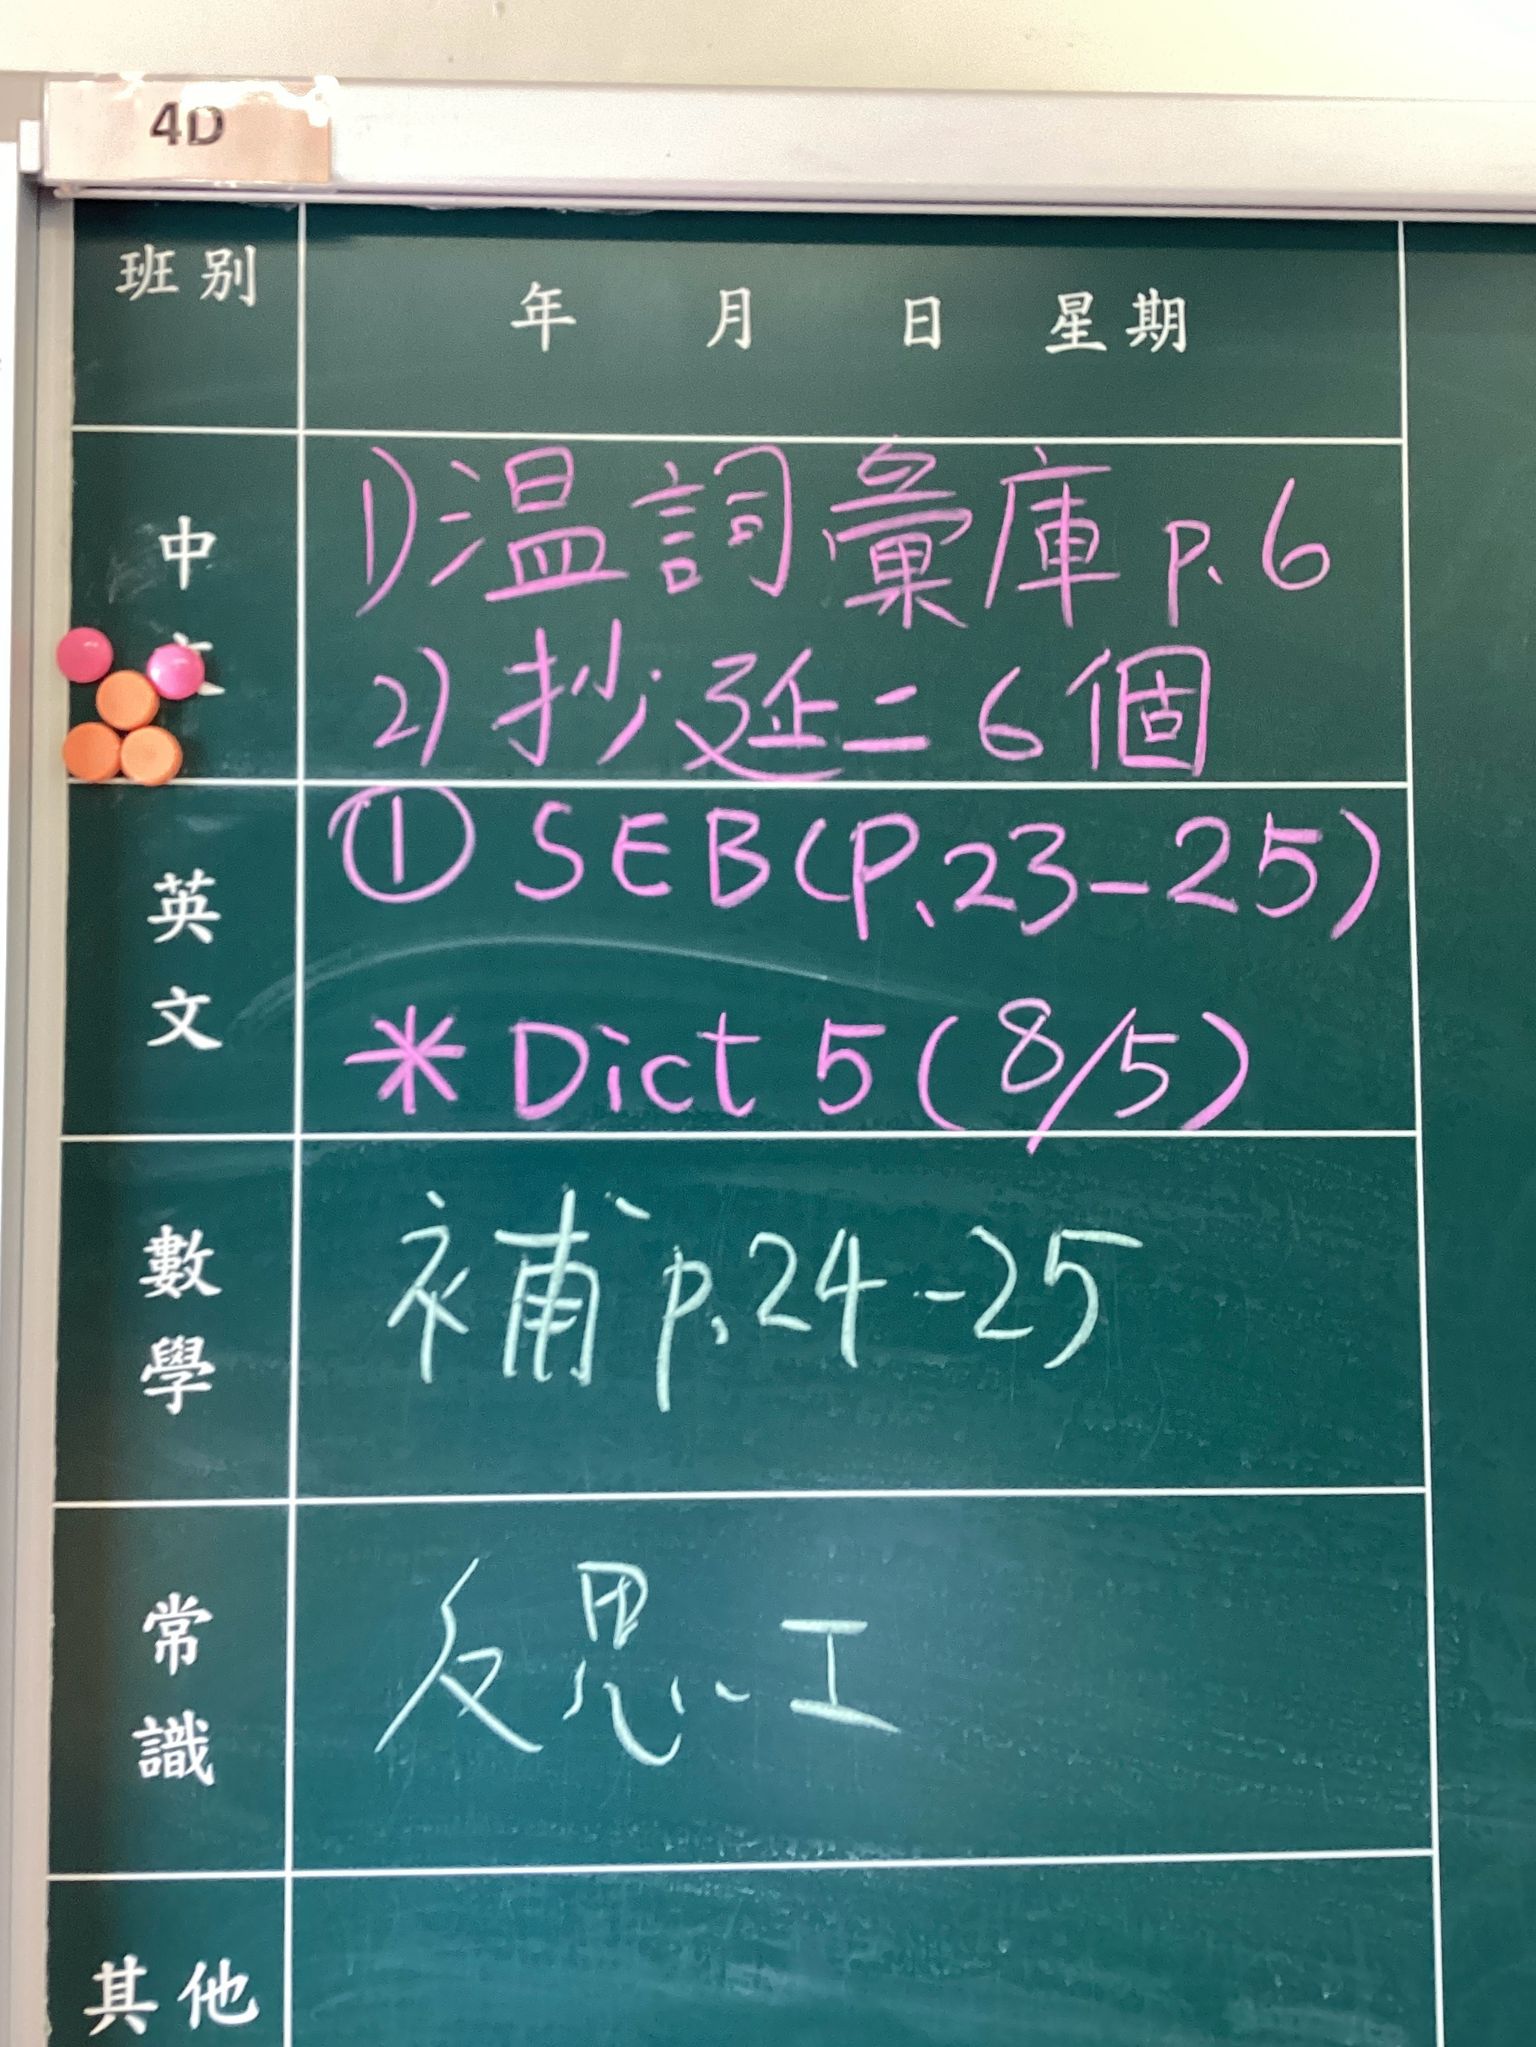 4D
班別
年 月 日 星期
中
1) 温詞彙庫 p.6
2) 抄延二 6個
英文
① SEB (P.23-25)
* Dict 5 (8/5)
數學
補 p.24-25
常識
反思工
其他